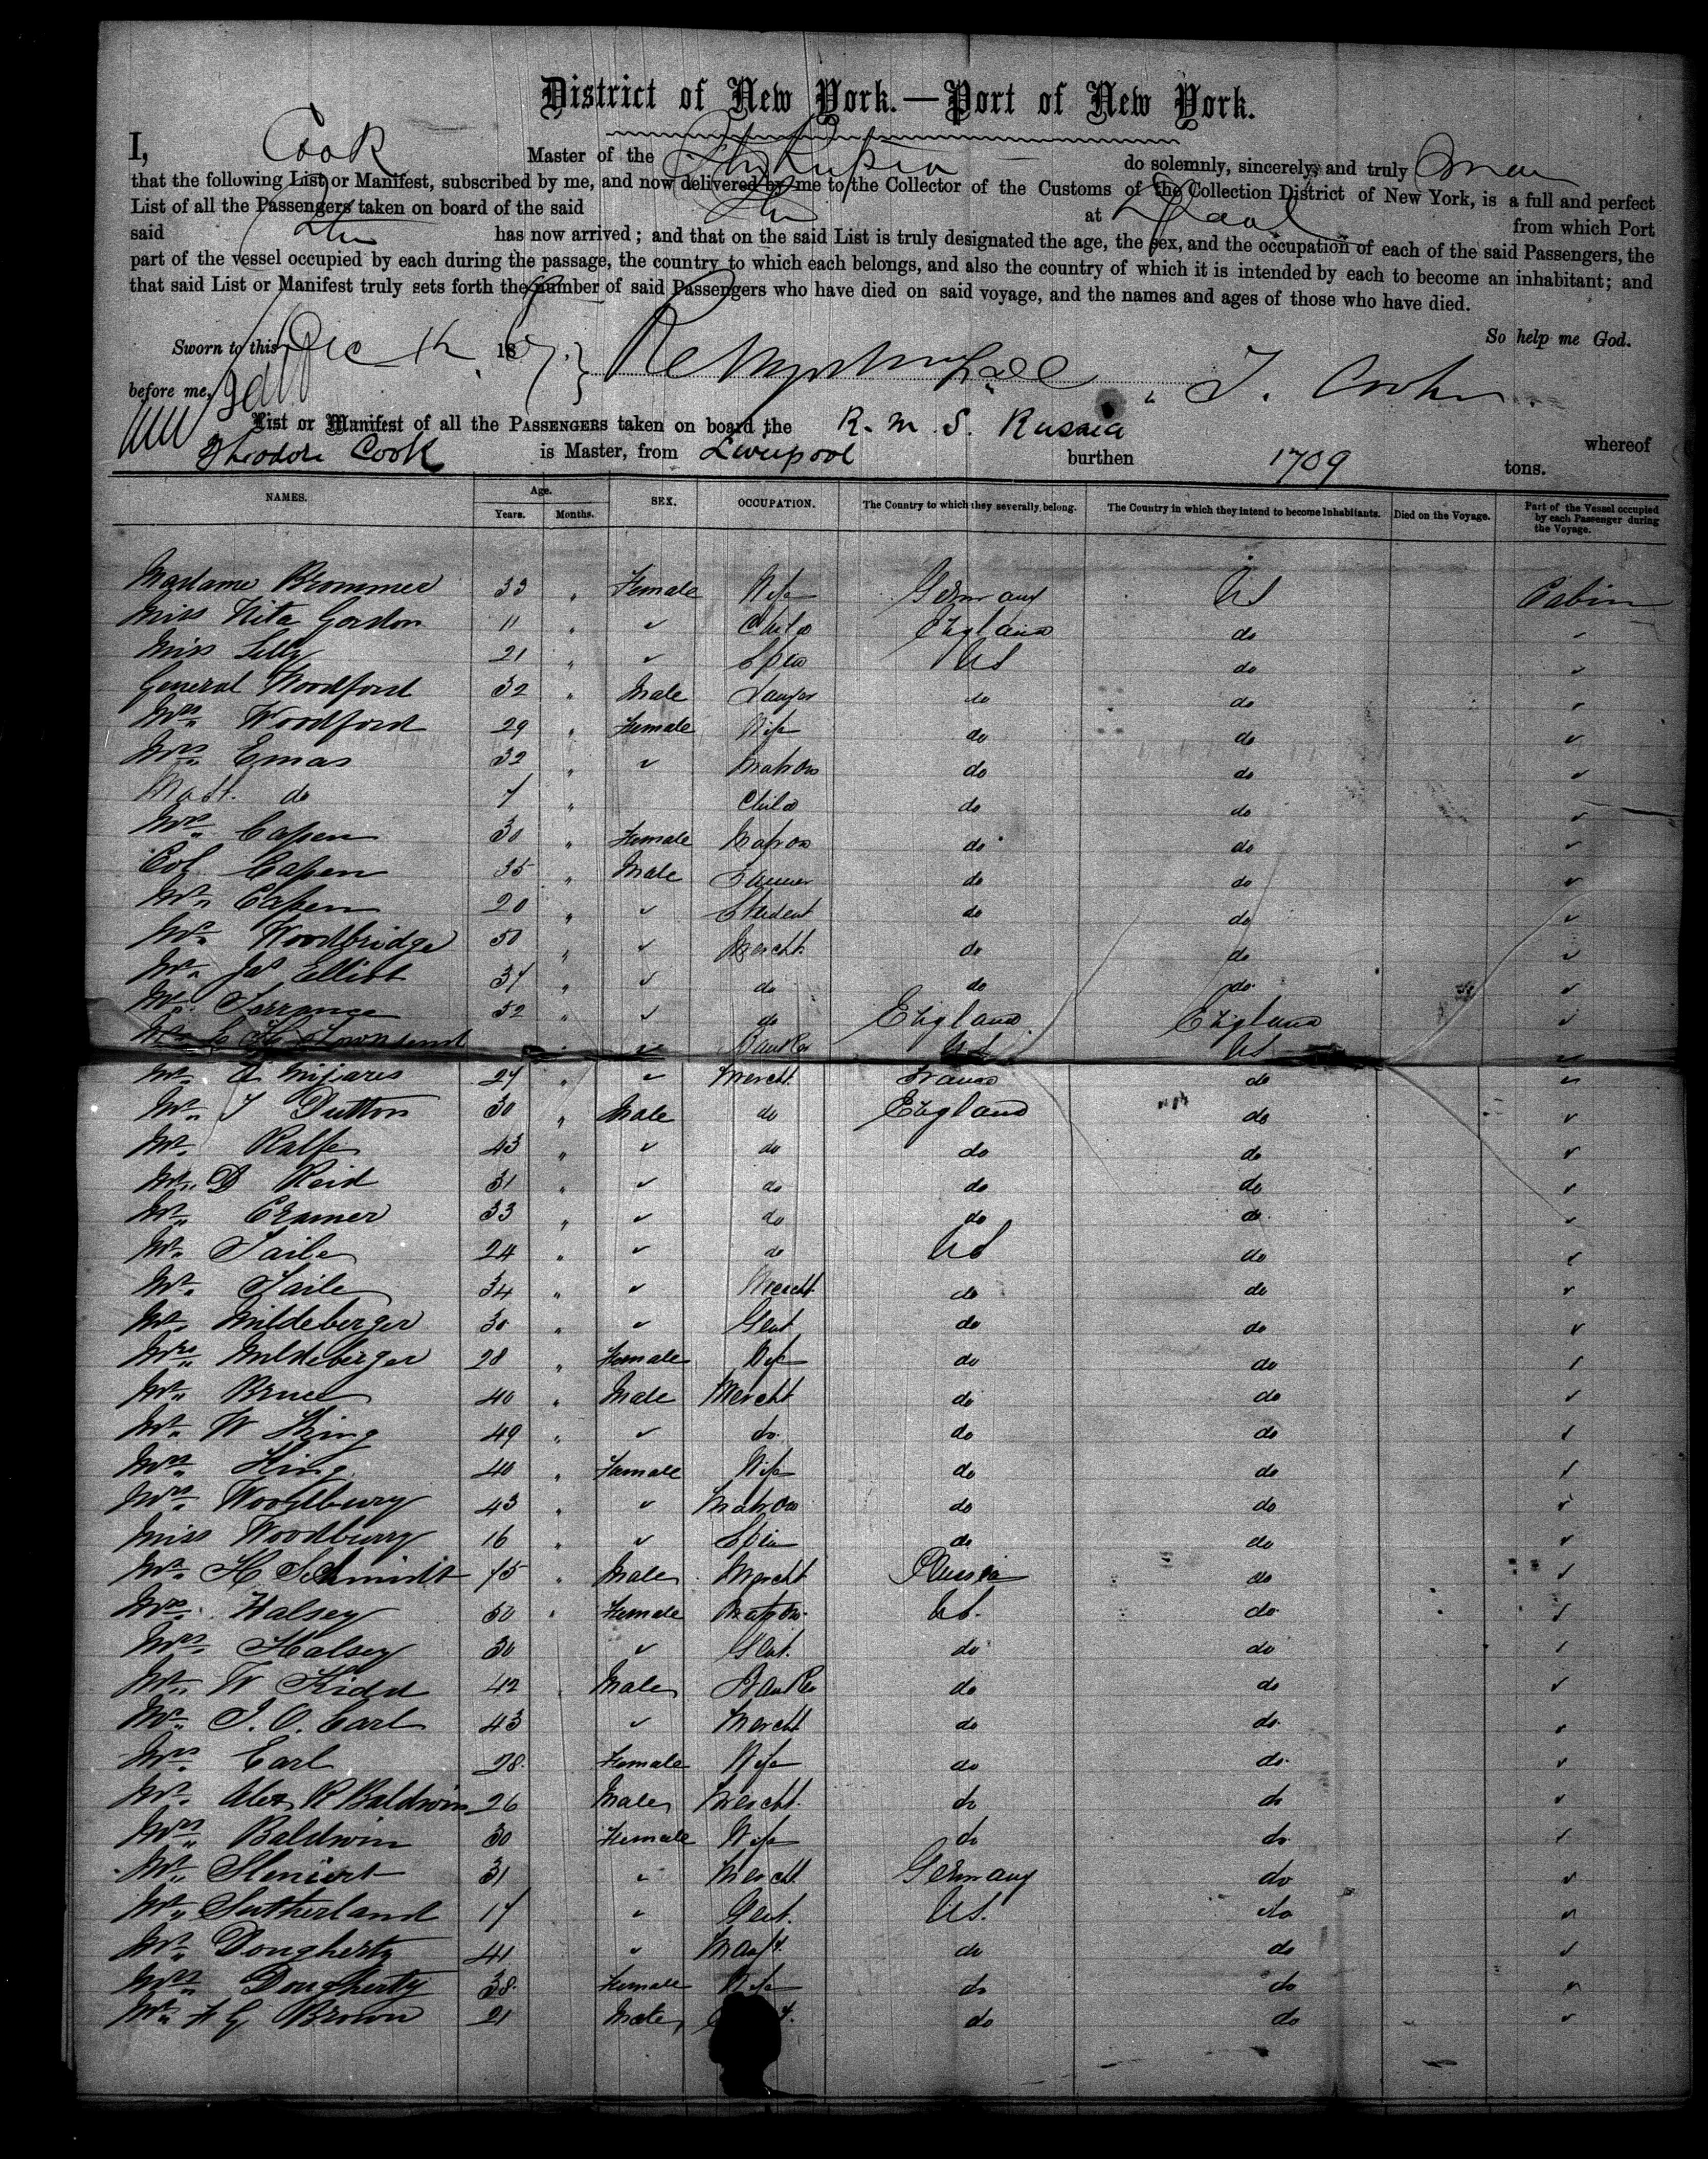 District of New York.—Port of New York.
I, Cook Master of the Str Russia do solemnly, sincerely, and truly swear
that the following List or Manifest, subscribed by me, and now delivered by me to the Collector of the Customs of the Collection District of New York, is a full and perfect
List of all the Passengers taken on board of the said Str at L'pool from which Port
said Str has now arrived; and that on the said List is truly designated the age, the sex, and the occupation of each of the said Passengers, the
part of the vessel occupied by each during the passage, the country to which each belongs, and also the country of which it is intended by each to become an inhabitant; and
that said List or Manifest truly sets forth the number of said Passengers who have died on said voyage, and the names and ages of those who have died.
So help me God.
Sworn to this Dec 186
before me, T. Cook
List or Manifest of all the PASSENGERS taken on board the R. M. S. Russia whereof
Theodore Cook is Master, from Liverpool burthen 1709 tons.
NAMES. Age. Years. Months. SEX. OCCUPATION. The Country to which they severally belong. The Country in which they intend to become Inhabitants. Died on the Voyage. Part of the Vessel occupied by each Passenger during the Voyage.
Madame Brommer 33 " Female Wife Germany US Cabin
Miss Nita Gordon 11 " ✓ Child England do ✓
Miss Lilly 21 " ✓ Spin US do ✓
General Woodford 32 " Male Lawyer do do ✓
Mrs Woodford 29 " Female Wife do do ✓
Mrs Emas 32 " ✓ Matron do do ✓
Mast. do 7 " Child do do ✓
Mrs Capen 30 " Female Matron do do ✓
Col Capen 35 " Male do do ✓
Mr Capen 20 " ✓ Student do do ✓
Mr Woodbridge 50 " ✓ Mercht. do do ✓
Mr Jas Elliot 37 " ✓ do do do ✓
Mr Torrance 52 " ✓ do England England ✓
Mr Townsend " ✓ Banker US US ✓
Mr A Mijares 27 " ✓ Mercht. France do ✓
Mr T Dutton 30 " Male do England do ✓
Mr Ralfe 43 " ✓ do do do ✓
Mr D Reid 31 " ✓ do do do ✓
Mr Cramer 33 " ✓ do do do ✓
Mr Saile 24 " ✓ do US do ✓
Mr Saile 34 " ✓ Mercht. do do ✓
Mr Mildeberger 30 " ✓ Gent do do ✓
Mrs Mildeberger 28 " Female Wife do do ✓
Mr Bruce 40 " Male Mercht do do ✓
Mr W King 49 " ✓ do do do ✓
Mrs King 40 " Female Wife do do ✓
Mrs Woodbury 43 " ✓ Matron do do ✓
Miss Woodbury 16 " ✓ Spin do do ✓
Mr H Schmidt 45 " Male Mercht Russia do ✓
Mrs Halsey 50 " Female Matron US. do ✓
Mrs Halsey 30 ✓ Gent. do do ✓
Mr W Kidd 42 Male Banker do do ✓
Mr J. O. Earl 43 ✓ Mercht do do ✓
Mrs Earl 28 Female Wife do do ✓
Mr Alex R Baldwin 26 Male Mercht. do do ✓
Mrs Baldwin 30 Female Wife do do ✓
Mr 31 ✓ Mercht Germany do ✓
Mr Sutherland 17 ✓ Gent. US. do ✓
Mr Dougherty 41 ✓ Manft. do do ✓
Mrs Dougherty 38 Female Wife do do ✓
Mr F G Brown 21 Male do do ✓